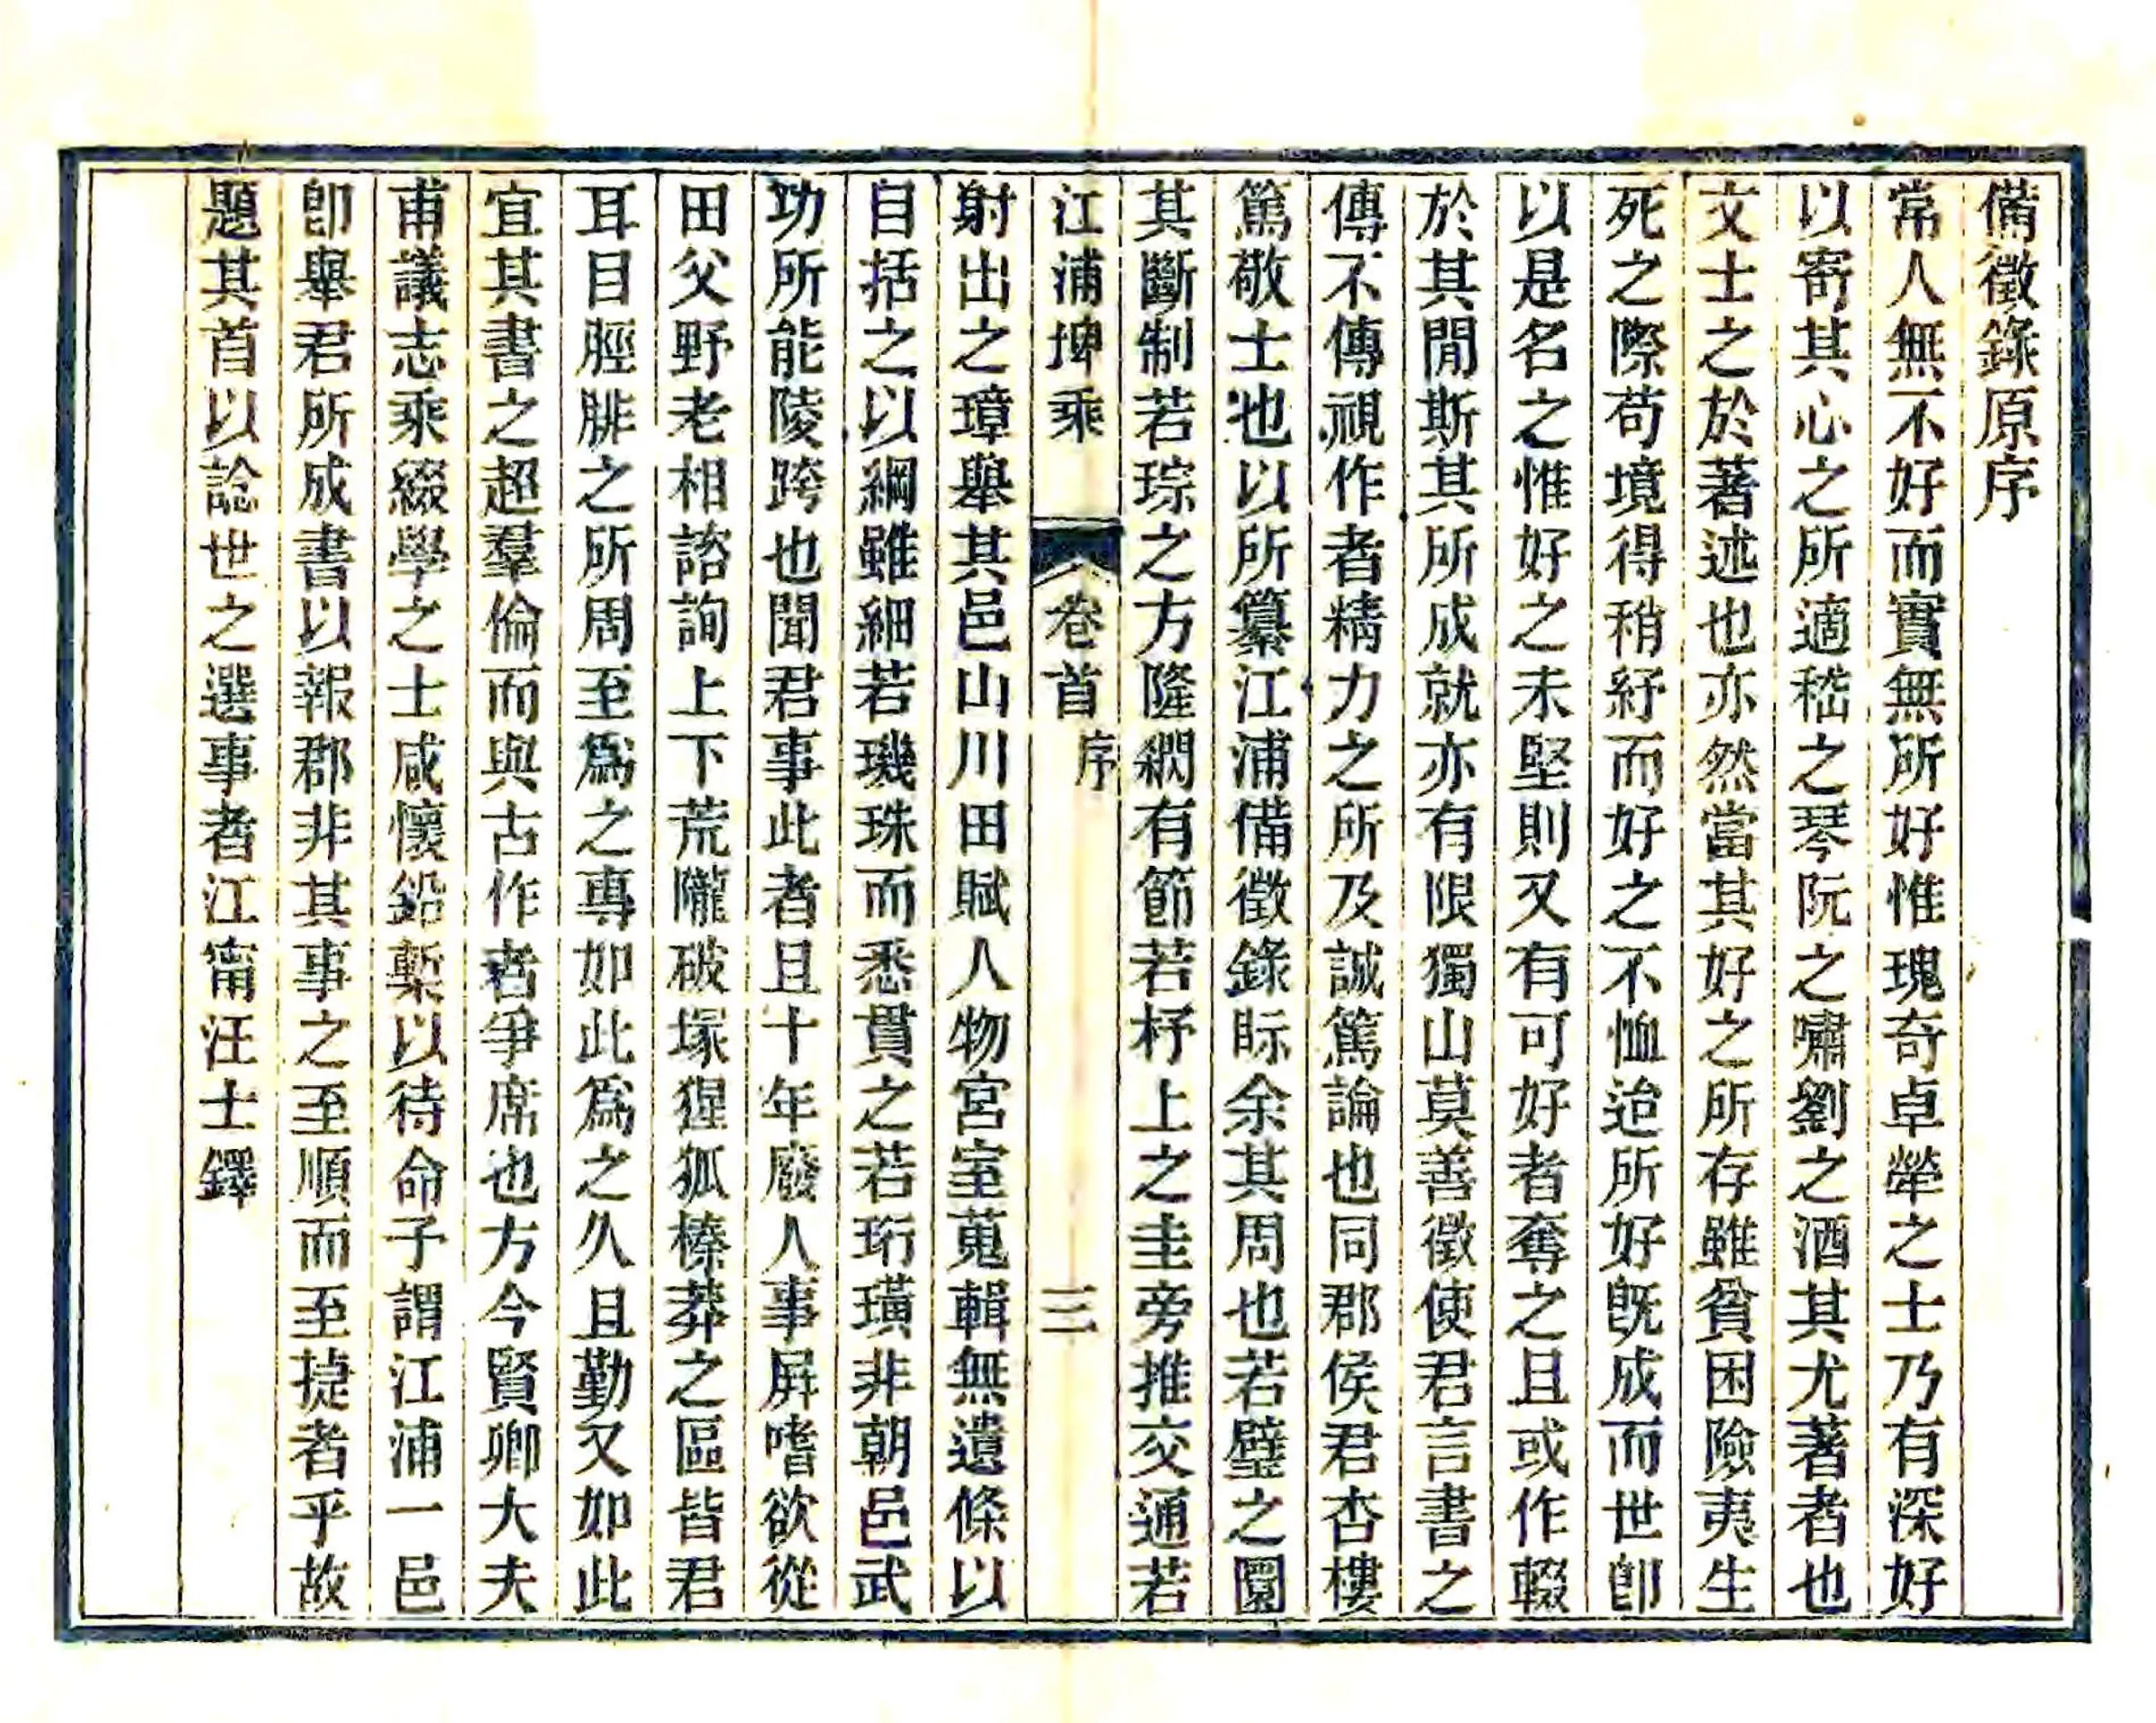 備徵錄原序
常人無不好而實無所好惟瑰奇卓犖之士乃有深好
以寄其心之所適嵇之琴阮之嘯劉之酒其尤著者也
文士之於著述也亦然當其好之所存雖貧困險夷生
死之際苟境得稍紓而好之不恤迨所好旣成而世卽
以是名之惟好之未堅則又有可好者奪之且或作輟
於其閒斯其所成就亦有限獨山莫善徵使君言書之
傳不傳視作者精力之所及誠篤論也同郡侯君杏樓
篤敬士也以所纂江浦備徵錄眎余其周也若璧之圜
其斷制若琮之方隆綱有節若杼上之圭旁推交通若
江浦埤乘
卷首
序
三
射出之璋舉其邑山川田賦人物宮室蒐輯無遺條以
自括之以綱雖細若璣珠而悉貫之若珩璜非朝邑武
功所能陵跨也聞君事此者且十年廢人事屛嗜欲從
田父野老相諮詢上下荒隴破塚狸狐榛莽之區皆君
耳目脛腓之所周至爲之專如此爲之久且勤又如此
宜其書之超羣倫而與古作者爭席也方今賢卿大夫
甫議志乘綴學之士咸懷鉛槧以待命子謂江浦一邑
卽舉君所成書以報郡非其事之至順而至捷者乎故
題其首以諗世之選事者江甯汪士鐸